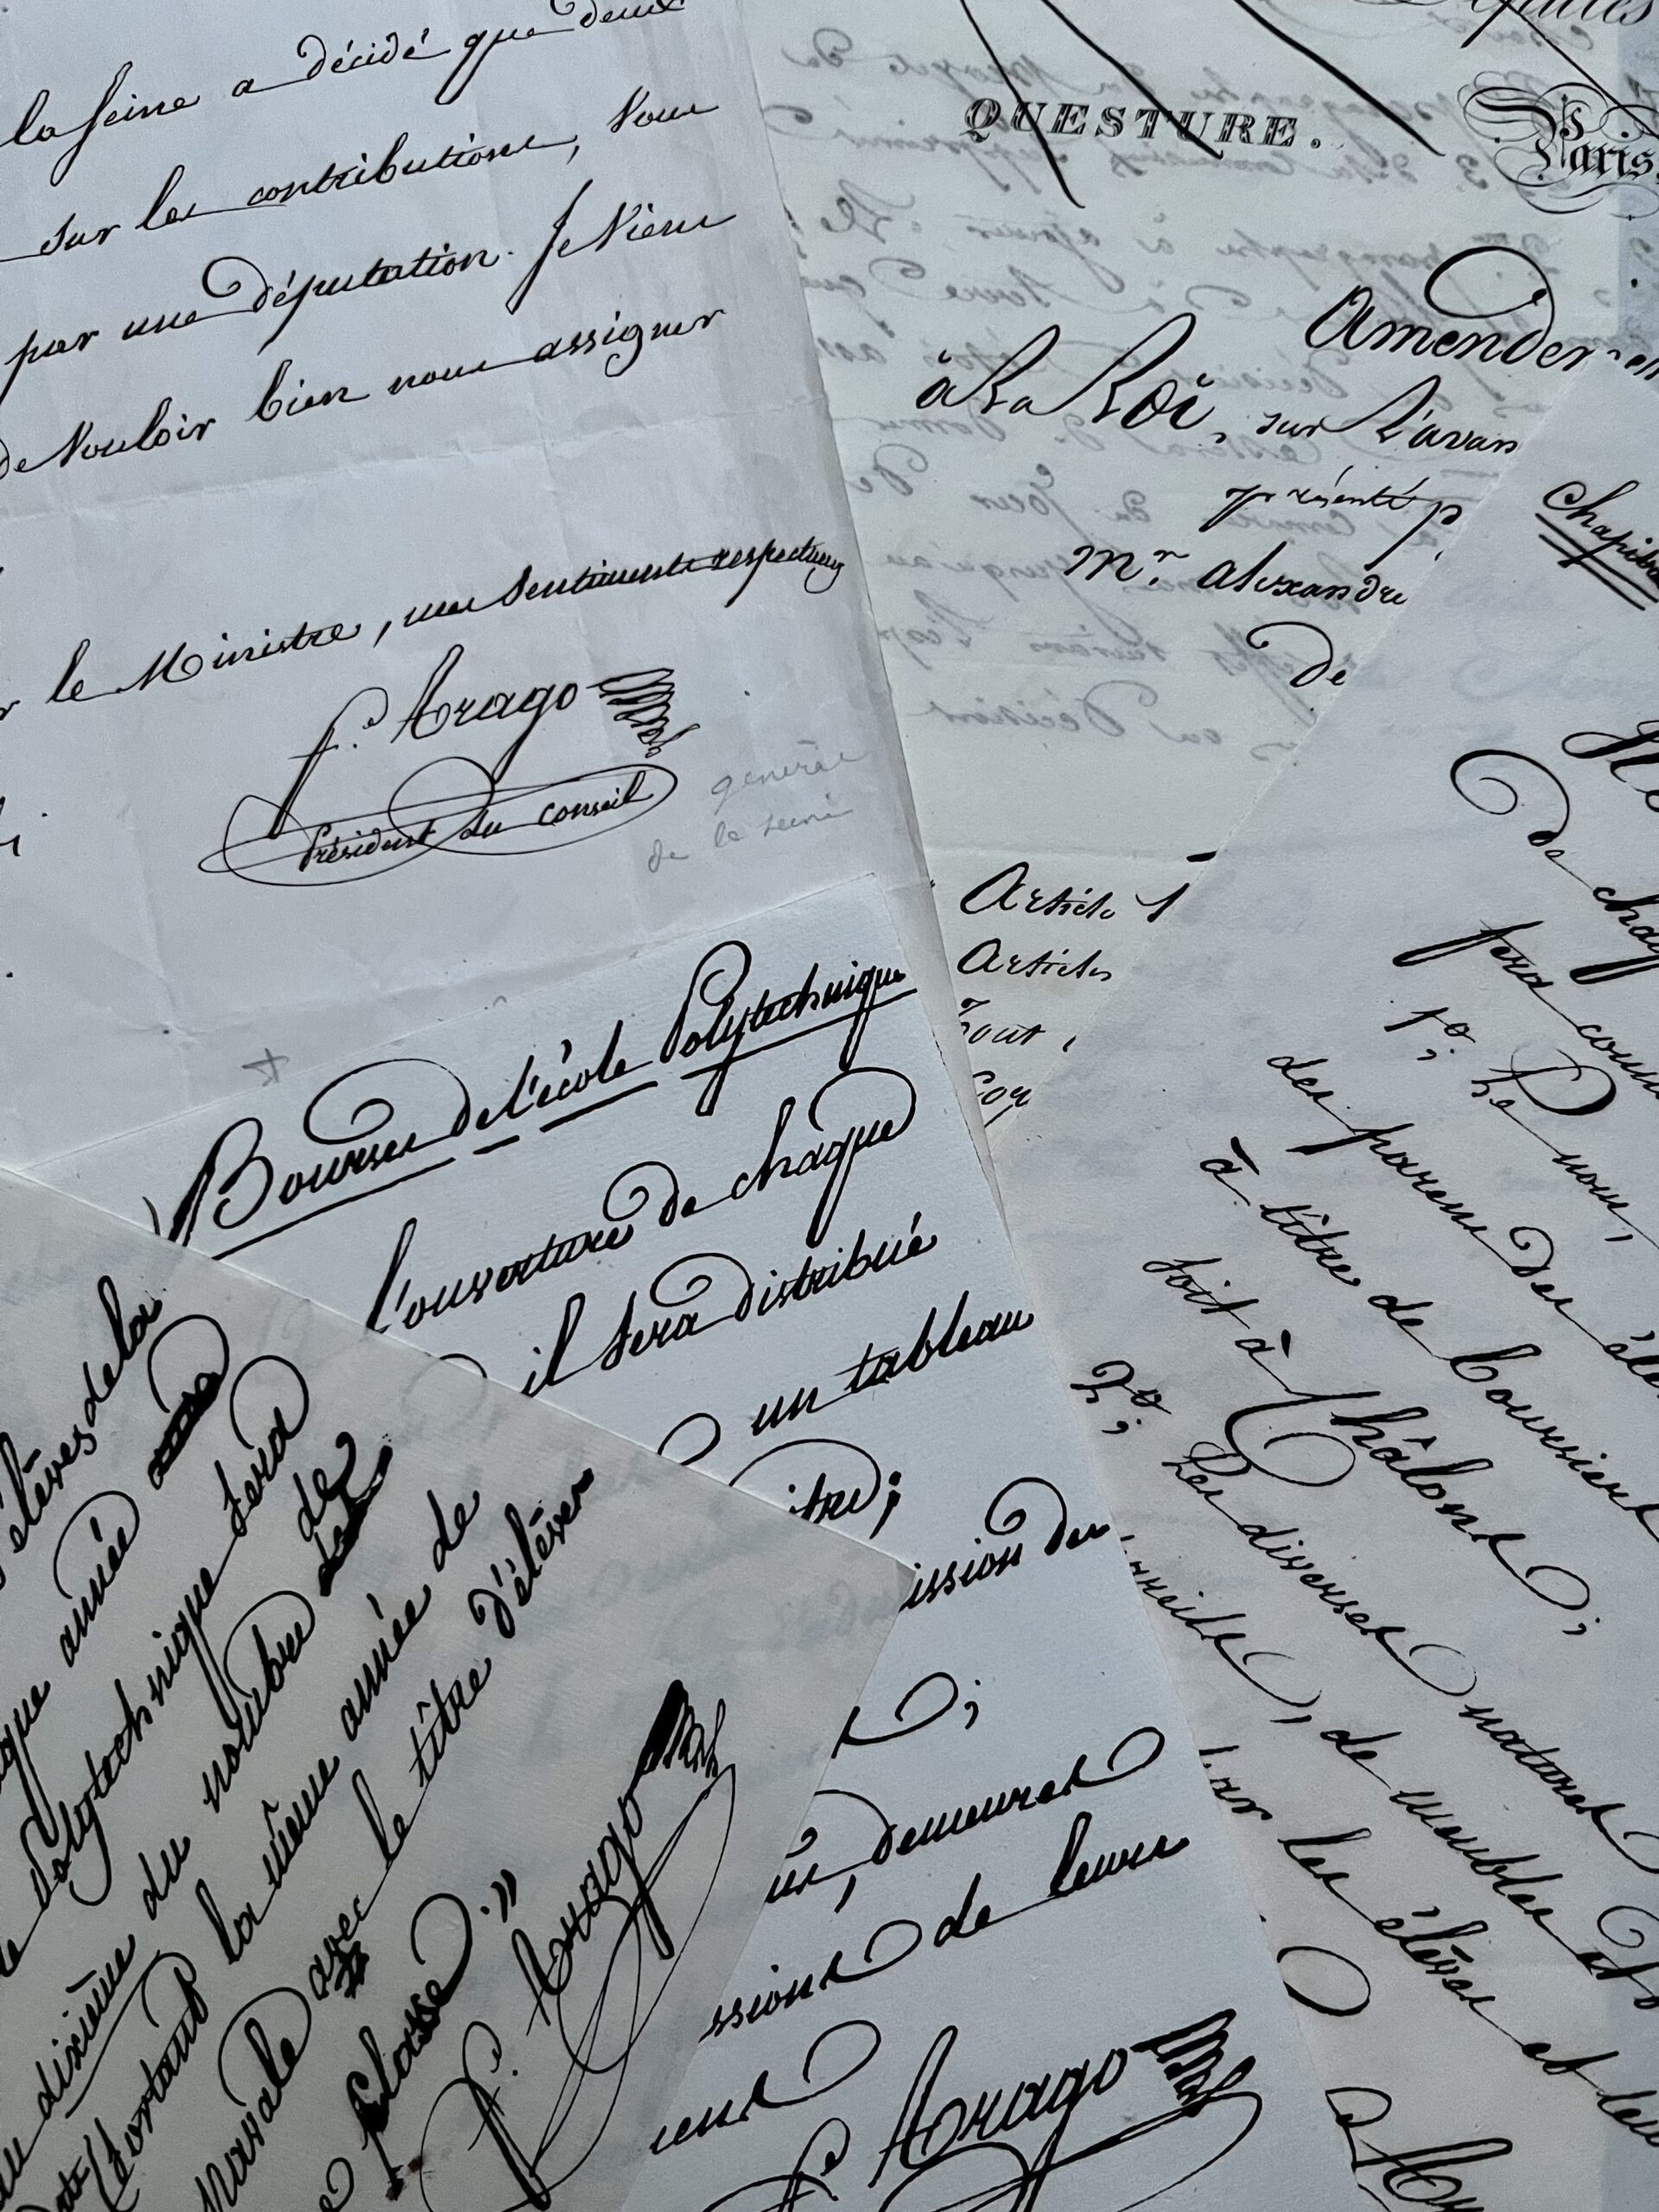 la Seine a décidé que deux
sur les contributions, vous
par une députation. Je viens
de vouloir bien nous assigner
le Ministre, mes sentiments respectueux
f. Arago
Président du Conseil
général
de la seine
QUESTURE.
Paris,
Amendement
à la Loi, sur l'avan
présenté p
Mr. alexandre
de
Article 1
Articles
Tout
Cou
Bourses de l'école Polytechnique
l'ouverture de chaque
il sera distribué
un tableau
itre;
ission des
demeures
ssions de leurs
f. Arago
élèves de la
que année
Polytechnique sera
de
du nombre
la même année de
avec le titre d'élèves
dixième
sortant
navale
classe."
f. Arago
Chapitre
de chaq
sera comm
1º; Le nom,
des parens des élè
à titre de boursiers
soit à Châlons;
2º; Les diverses natures
de meubles et
par les élèves et leu